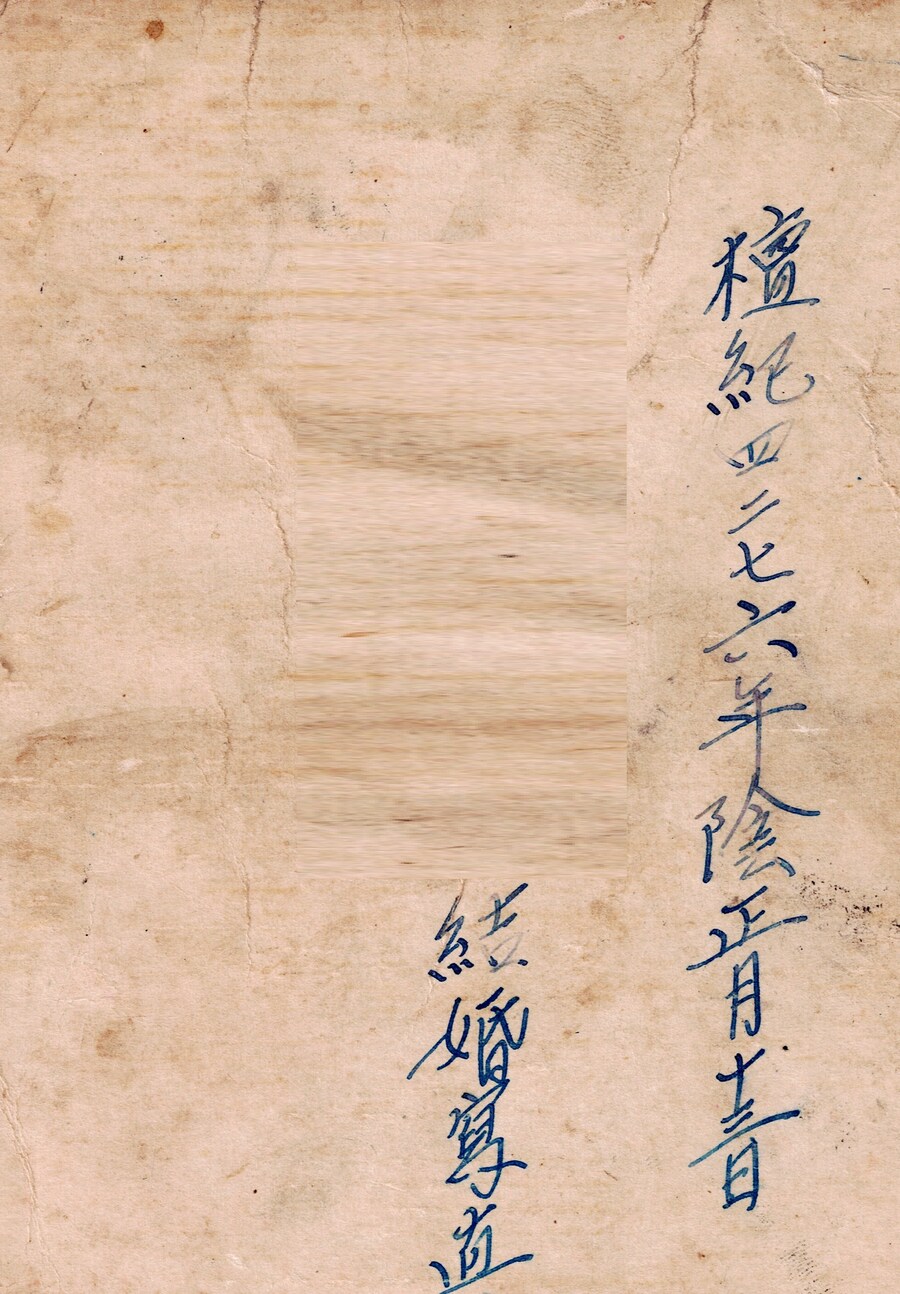 檀紀四二七六年陰正月十三日
結婚寫真